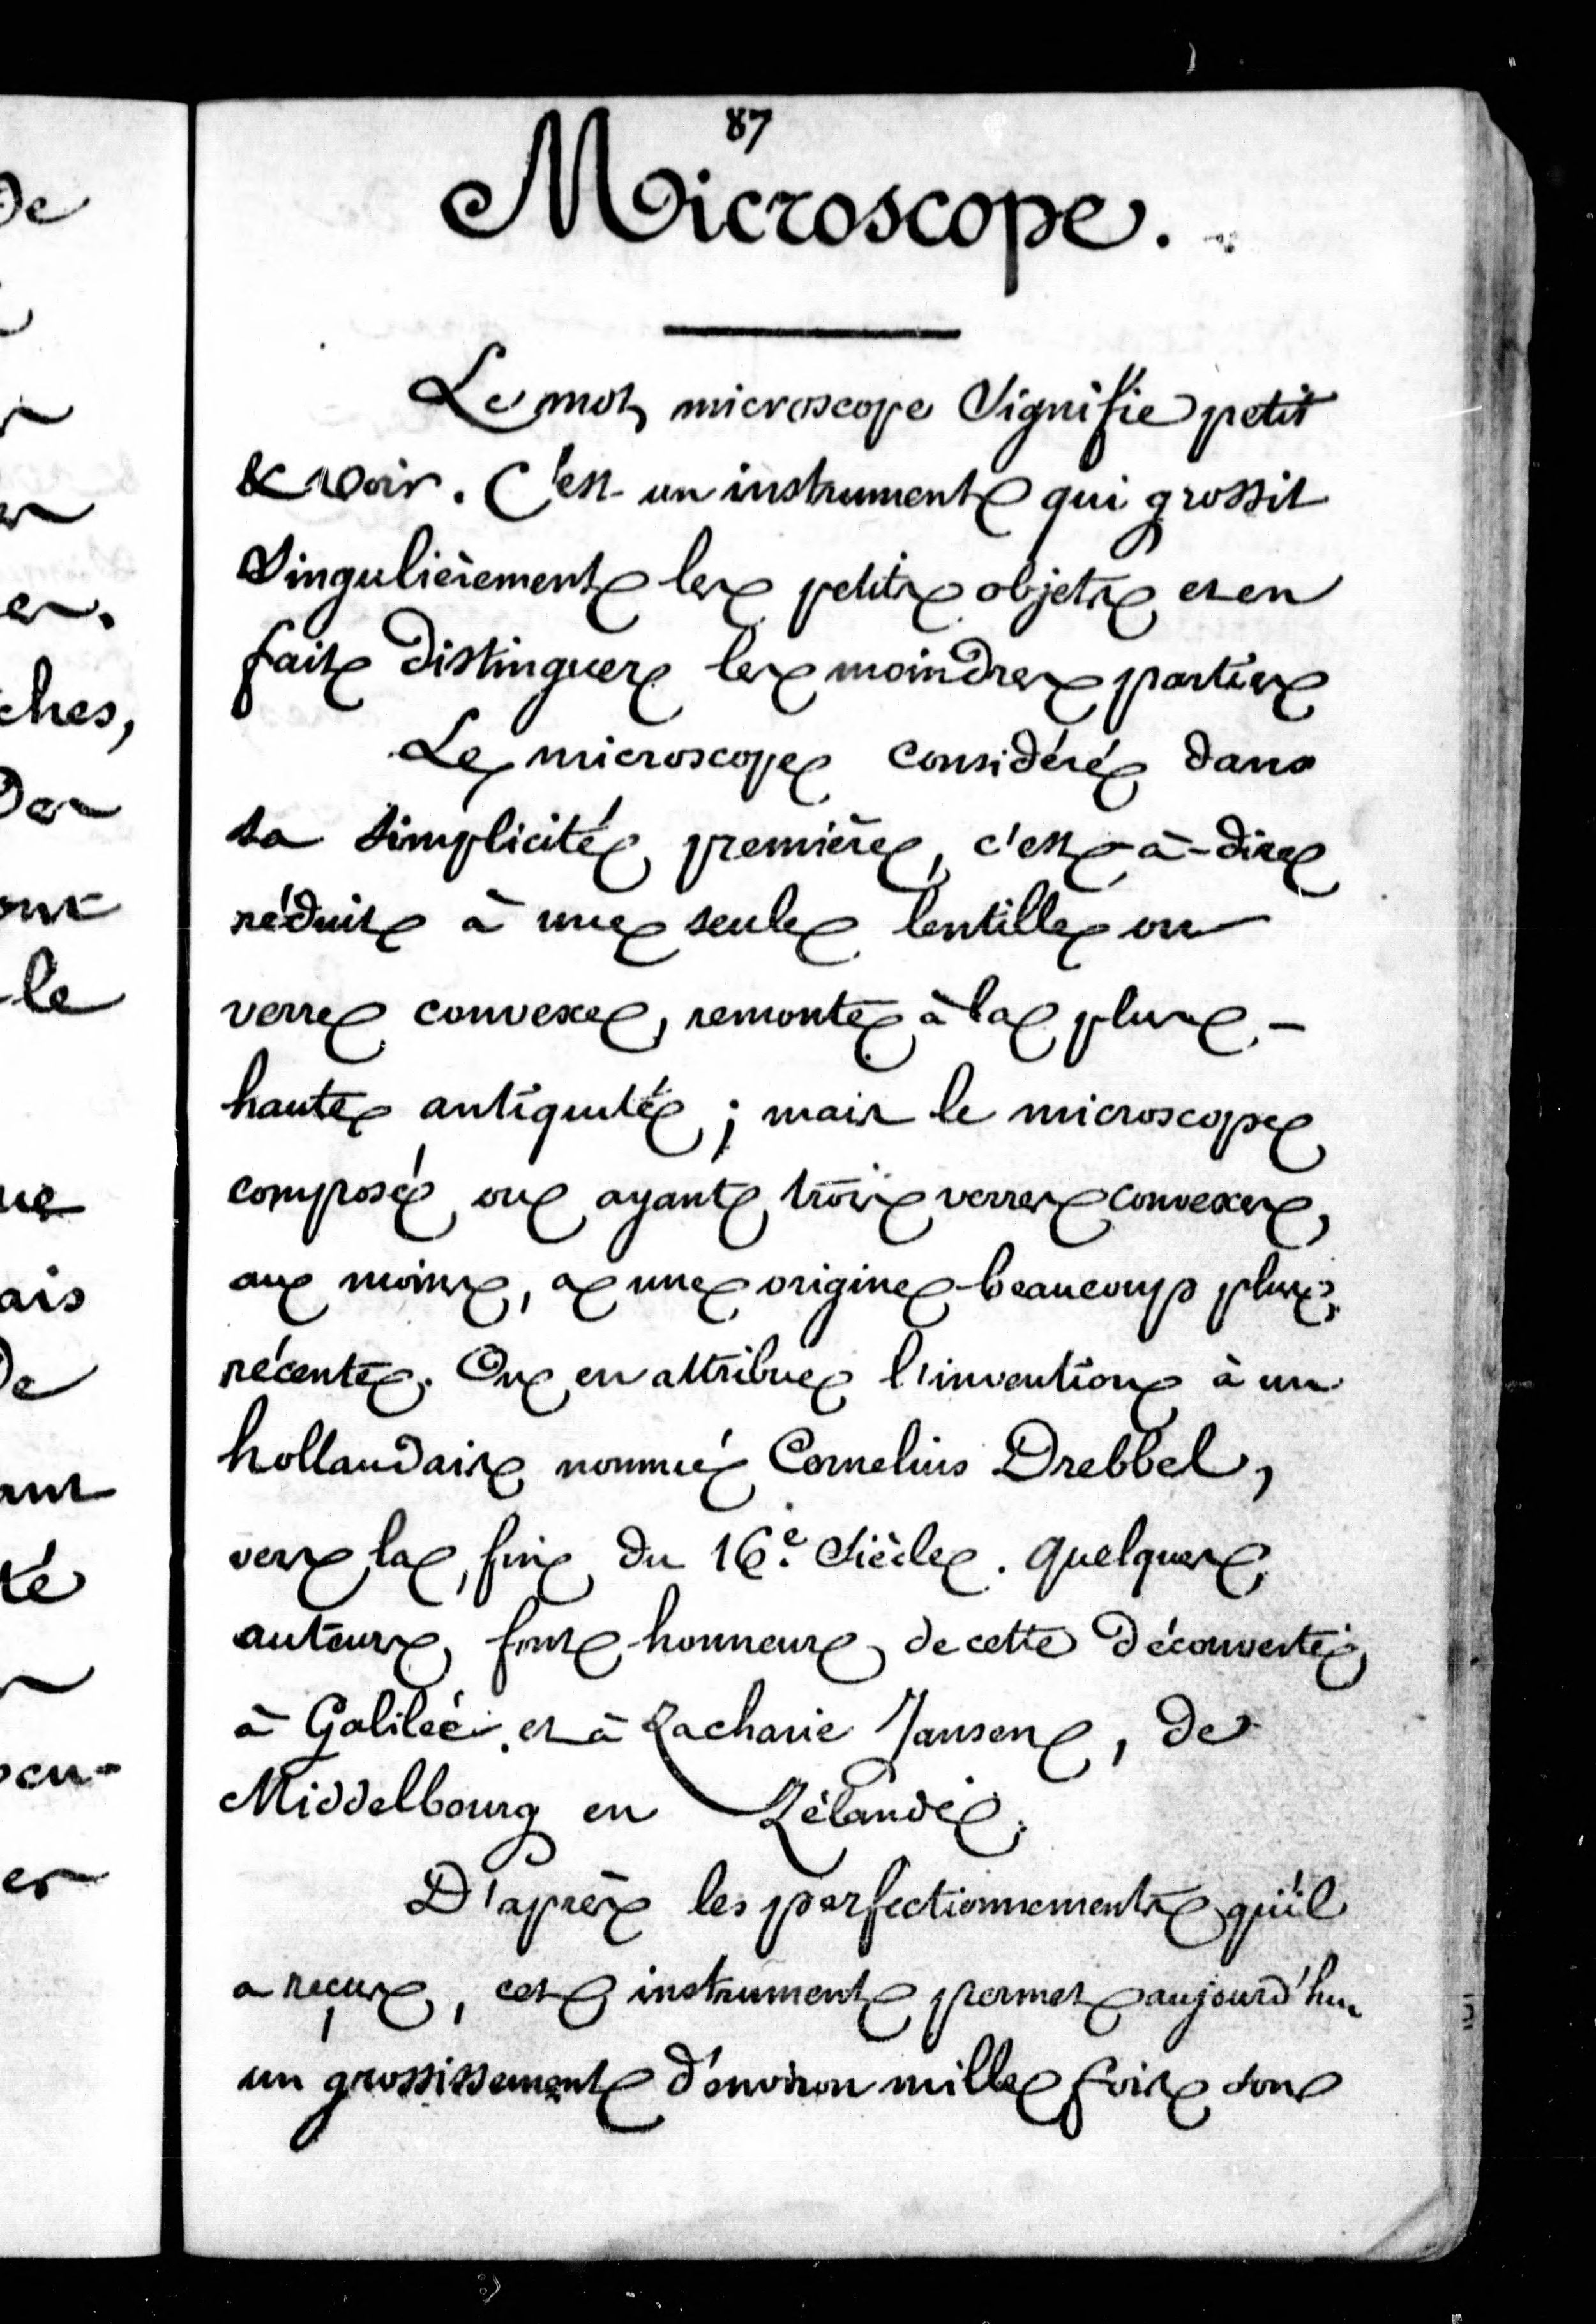 De
ches,
le
ais
De
té
er
87
Microscope.
Le mot microscope signifie petit
& voir. C'est un instrument qui grossit
singulièrement les petits objets et en
fait distinguer les moindres parties
Le microscope considéré dans
sa simplicité première, c'est-à-dire
réduit à une seule lentille ou
verre convexe, remonte à la plus -
haute antiquité ; mais le microscope
composé ou ayant trois verres convexes,
au moins, a une origine beaucoup plus
récente. On en attribue l'invention à un
hollandais nommé Cornelius Drebbel,
vers la fin du 16e. siècle. quelques
auteurs font honneur de cette découverte
à Galilée et à Zacharie Jansen, de
Middelbourg en Zélande.
D'après les perfectionnements qu'il
a reçus, cet instrument permet aujourd'hui
un grossissement d'environ mille fois son